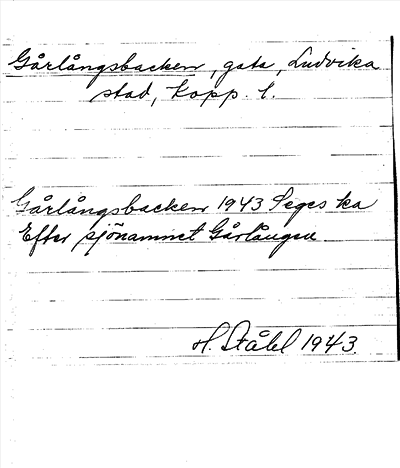 Gårlångsbacken, gata, Ludvika
stad, Kopp. l.
Gårlångsbacken 1943 Seges ha
Efter sjönamnet Gårlången
H. Ståhl 1943